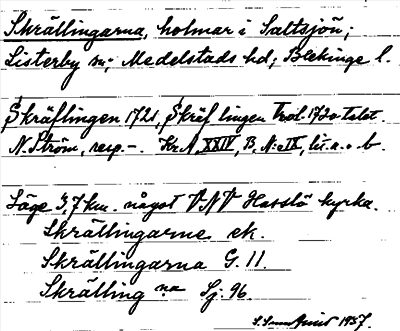 Skrällingarna, holmar i Saltsjön;
Listerby sn; Medelstads hd; Blekinge l.
Skräflingen 1721, Skräf lingen trol. 1720-talet.
N. Ström, resp -. Kr. A, XXIV, B, N:o IX, lit. a. o b.
Läge 3,7 km. något V-NV Hasslö kyrka.
Skrällingarne ek.
Skrällingarna G. 11.
Skrälling na Sj. 96.
1937.